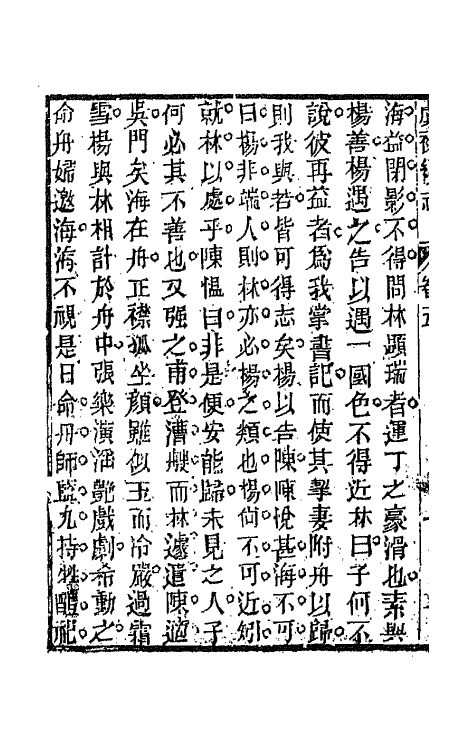 海益閉影不得間林顯瑞者運丁之豪滑也素與
楊善楊遇之告以遇一國色不得近林曰子何不
說彼再益者為我掌書記而使其挈妻附舟以歸
則我與若皆可得志矣楊以告陳陳悅甚海不可
曰楊非端人則林亦必楊之類也楊尙不可近矧
就林以處乎陳慍曰非是便安能歸未見之人子
何必其不善也又强之甫登漕艘而林遽遣陳適
吳門矣海在舟正襟孤坐顏雖似玉而冷嚴過霜
雪楊與林相計於舟中張樂演滛艶戲劇希動之
命舟婦邀海海不視是日命舟師監九持牲醴祀